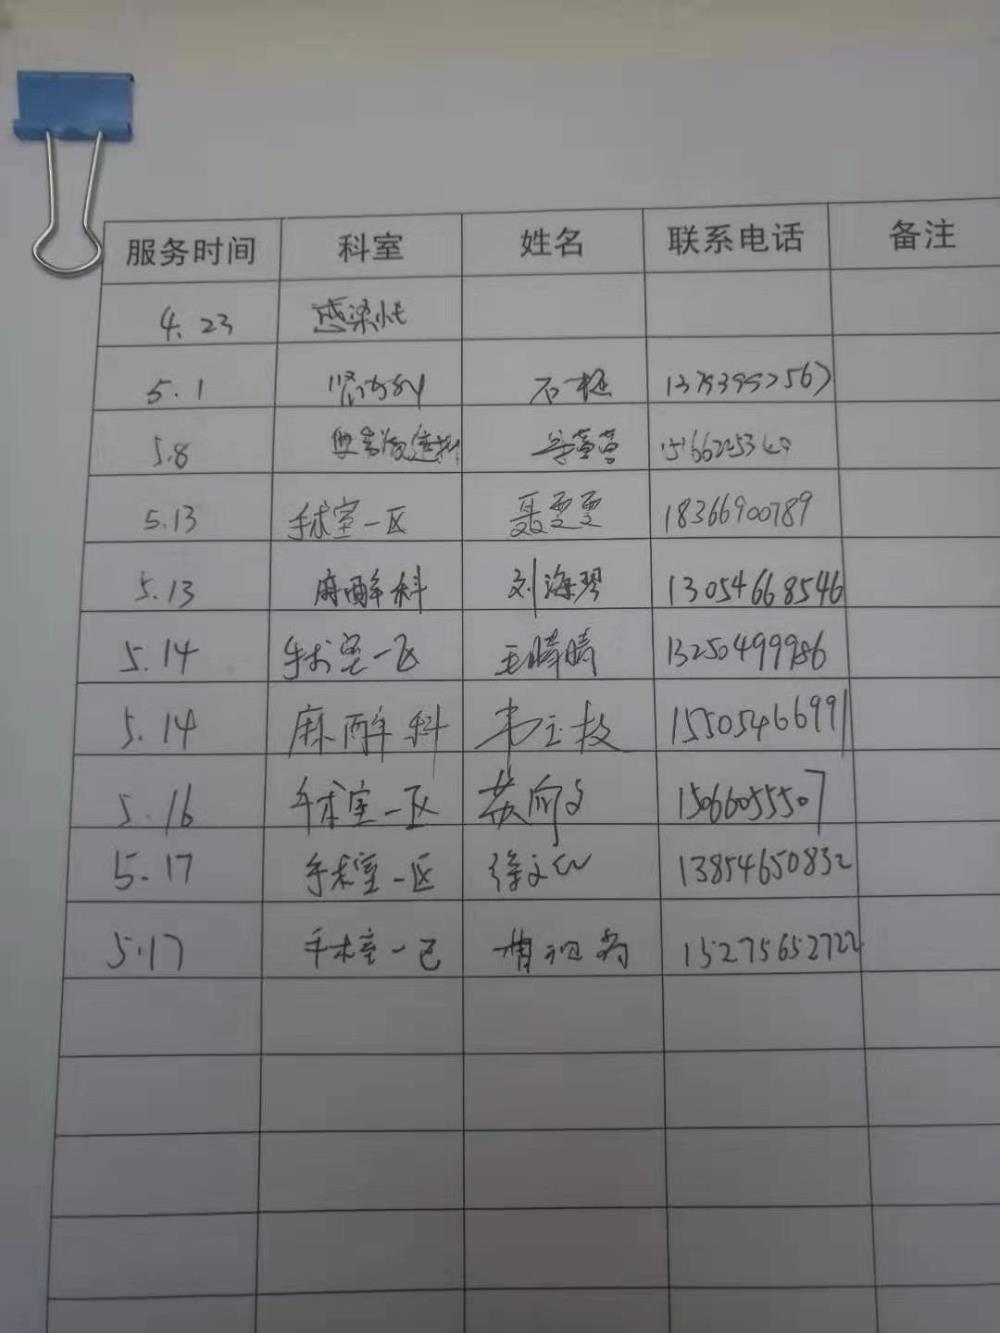 服务时间 科室 姓名 联系电话 备注
4.23 感染性
5.1 肾内科
5.8
5.13 手术室一区 聂雯雯 18366900789
5.13 麻醉科 刘海琴 13054668546
5.14 手术室一区 王晴晴 13250499986
5.14 麻醉科 15505466991
5.16 手术室一区 15066055507
5.17 手术室一区 徐文 13854650832
5.17 手术室一 15275652722